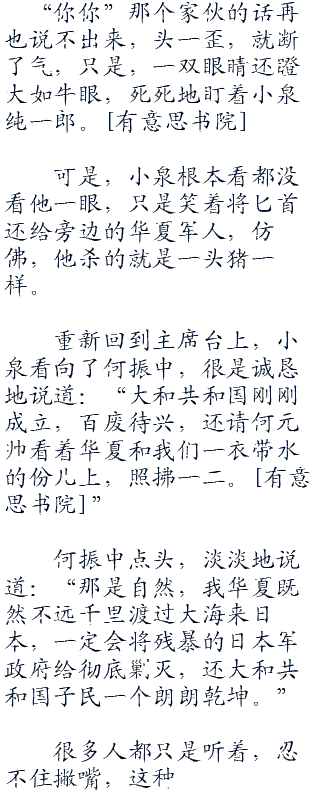 “你你”那个家伙的话再
也说不出来，头一歪，就断
了气，只是，一双眼睛还瞪
大如牛眼，死死地盯着小泉
纯一郎。[有意思书院]
可是，小泉根本看都没
看他一眼，只是笑着将匕首
还给旁边的华夏军人，仿
佛，他杀的就是一头猪一
样。
重新回到主席台上，小
泉看向了何振中，很是诚恳
地说道：“大和共和国刚刚
成立，百废待兴，还请何元
帅看着华夏和我们一衣带水
的份儿上，照拂一二。[有意
思书院]”
何振中点头，淡淡地说
道：“那是自然，我华夏既
然不远千里渡过大海来日
本，一定会将残暴的日本军
政府给彻底剿灭，还大和共
和国子民一个朗朗乾坤。”
很多人都只是听着，忍
不住撇嘴，这种